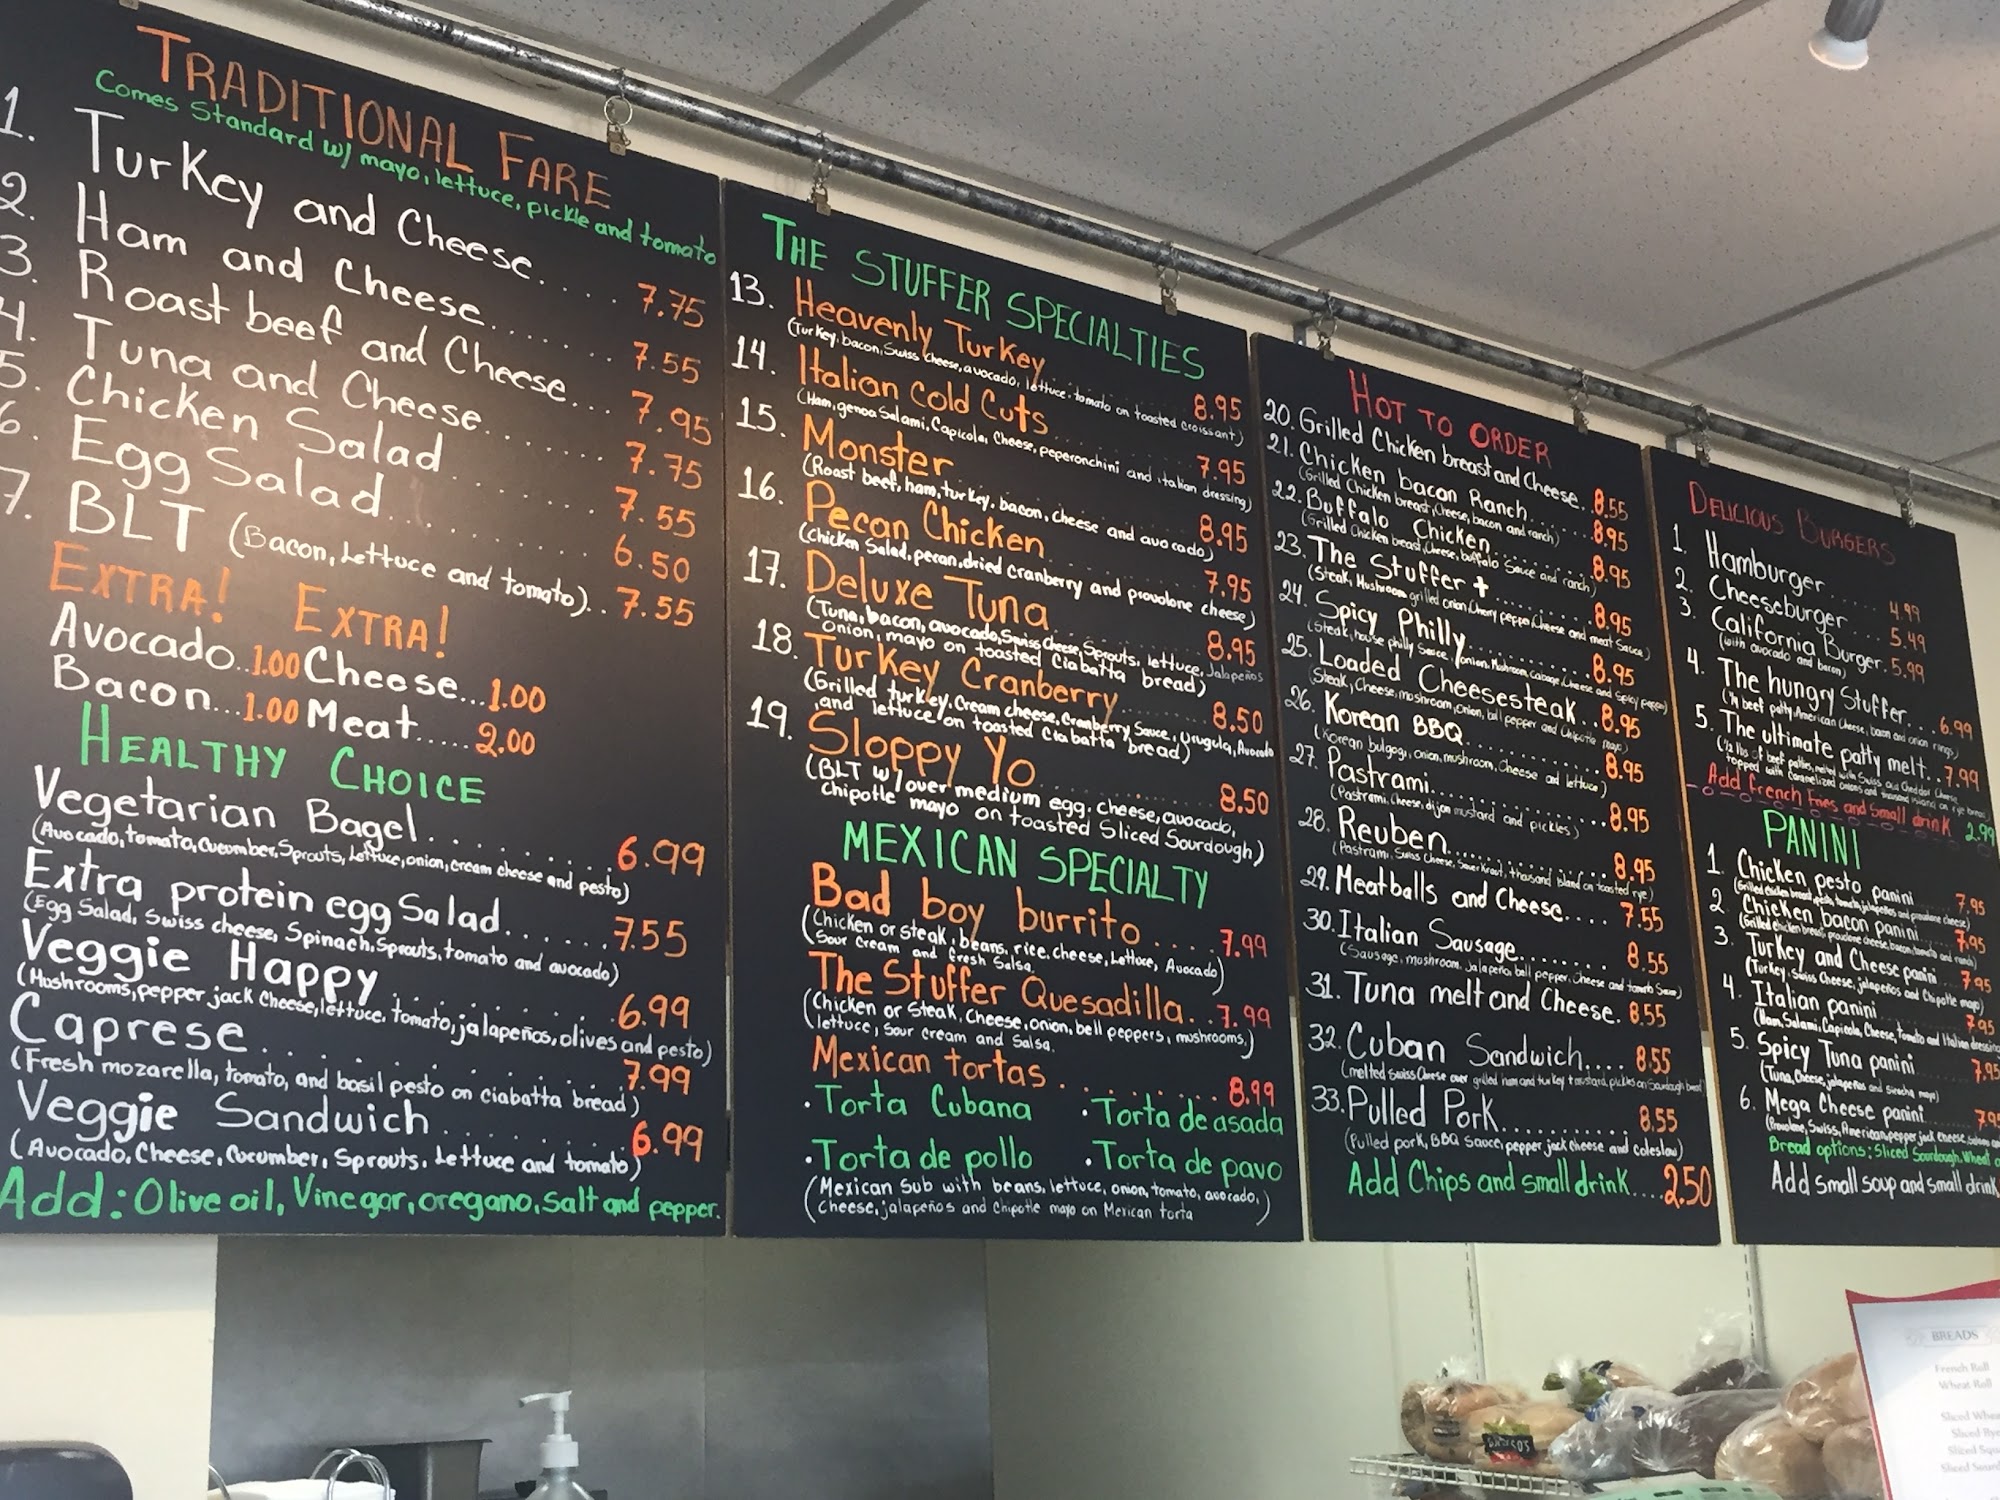 TRADITIONAL FARE
Comes Standard w/ mayo, lettuce, pickle and tomato
1. Turkey and Cheese..... 7.75
2. Ham and Cheese....... 7.55
3. Roast beef and Cheese... 7.95
4. Tuna and Cheese....... 7.75
5. Chicken Salad....... 7.55
6. Egg Salad.......... 6.50
7. BLT (Bacon, Lettuce and tomato).. 7.55
EXTRA! EXTRA!
Avocado..1.00 Cheese...1.00
Bacon...1.00 Meat.....2.00
HEALTHY CHOICE
Vegetarian Bagel........ 6.99
(Avocado, tomato, Cucumber, Sprouts, Lettuce, onion, cream cheese and pesto)
Extra protein egg Salad....... 7.55
(Egg Salad, Swiss cheese, Spinach, Sprouts, tomato and avocado)
Veggie Happy.......... 6.99
(Mushrooms, pepper jack cheese, lettuce, tomato, jalapeños, olives and pesto)
Caprese............. 7.99
(Fresh mozarella, tomato, and basil pesto on ciabatta bread)
Veggie Sandwich......... 6.99
(Avocado, Cheese, Cucumber, Sprouts, Lettuce and tomato)
Add: Olive oil, Vinegar, oregano, salt and pepper.
THE STUFFER SPECIALTIES
13. Heavenly Turkey.......... 8.95
(Turkey, bacon, Swiss Cheese, avocado, lettuce, tomato on toasted croissant)
14. Italian Cold Cuts.......... 7.95
(Ham, genoa Salami, Capicola, Cheese, peperonchini and italian dressing)
15. Monster............. 8.95
(Roast beef, ham, turkey, bacon, cheese and avocado)
16. Pecan Chicken.......... 7.95
(Chicken Salad, pecan, dried cranberry and provolone cheese)
17. Deluxe Tuna.......... 8.95
(Tuna, bacon, avocado, Swiss Cheese, Sprouts, lettuce, Jalapeños
Onion, mayo on toasted Ciabatta bread)
18. Turkey Cranberry....... 8.50
(Grilled turkey, Cream cheese, Cranberry Sauce, Urugula, Avocado
and lettuce on toasted ciabatta bread)
19. Sloppy Yo.......... 8.50
(BLT w/ over medium egg, cheese, avocado,
chipotle mayo on toasted Sliced Sourdough)
MEXICAN SPECIALTY
Bad boy burrito.... 7.99
(Chicken or steak, beans, rice, cheese, Lettuce, Avocado
Sour cream and fresh Salsa.)
The Stuffer Quesadilla... 7.99
(Chicken or Steak, Cheese, onion, bell peppers, mushrooms,
lettuce, sour cream and Salsa.)
Mexican tortas......... 8.99
• Torta Cubana • Torta de asada
• Torta de pollo • Torta de pavo
(Mexican Sub with beans, lettuce, onion, tomato, avocado,
cheese, jalapeños and Chipotle mayo on Mexican torta)
HOT TO ORDER
20. Grilled Chicken breast and Cheese.. 8.55
21. Chicken bacon Ranch....... 8.95
(Grilled Chicken breast, Cheese, bacon and ranch)
22. Buffalo Chicken.......... 8.95
(Grilled Chicken breast, Cheese, buffalo Sauce and ranch)
23. The Stuffer +.......... 8.95
(Steak, Mushroom grilled onion, Cherry pepper, Cheese and meat Sauce)
24. Spicy Philly.......... 8.95
(Steak, house philly Sauce, onion, Mushroom, Cabage, Cheese and Spicy pepper)
25. Loaded Cheesesteak.. 8.95
(Steak, Cheese, moshroom, onion, bell pepper and Chipotle mayo)
26. Korean BBQ.......... 8.95
(Korean bulgogi, onion, mushroom, Cheese and lettuce)
27. Pastrami............ 8.95
(Pastrami, Cheese, dijon mustard and pickles)
28. Reuben............. 8.95
(Pastrami, Swiss Cheese, Sauerkraut, thousand island on toasted rye)
29. Meatballs and Cheese.... 7.55
30. Italian Sausage........ 8.55
(Sausage, moshroom, jalapeño, bell pepper, Cheese and tomato Sauce)
31. Tuna melt and Cheese. 8.55
32. Cuban Sandwich.... 8.55
(melted Swiss Cheese over grilled ham and turkey + mustard, pickles on Sourdough bread)
33. Pulled Pork.......... 8.55
(Pulled pork, BBQ sauce, pepper jack cheese and coleslaw)
Add Chips and small drink....2.50
DELICIOUS BURGERS
1. Hamburger...... 4.99
2. Cheeseburger.... 5.49
3. California Burger. 5.99
(with avocado and bacon)
4. The hungry Stuffer... 6.99
beef patty, American Cheese, bacon and onion rings)
5. The ultimate patty melt.. 7.99
(1/2 lbs of beef patties, melted with Swiss and Cheddar Cheese
topped with Caramelized onions and thousand island on rye bread
Add French Fries and Small drink 2.99
PANINI
1. Chicken pesto panini.... 7.95
(Grilled chicken breast, pesto, tomato, jalapeños and provolone cheese)
2. Chicken bacon panini.... 7.95
(Grilled chicken breast, provolone cheese, bacon, tomato and ranch)
3. Turkey and Cheese panini... 7.95
(Turkey, Swiss Cheese, jalapeños and Chipotle mayo)
4. Italian panini......... 7.95
(Ham, Salami, Capicola, Cheese, Tomato and Italian dressing
5. Spicy Tuna panini...... 7.95
(Tuna, Cheese, jalapeños and Siracha mayo)
6. Mega Cheese panini..... 7.95
(Provolone, Swiss, American, pepper jack cheese,
Bread options: Sliced Sourdough, Wheat
Add small soup and small drink
BREADS
French Roll
Wheat Roll
Sliced
Sliced
Sliced
Sliced